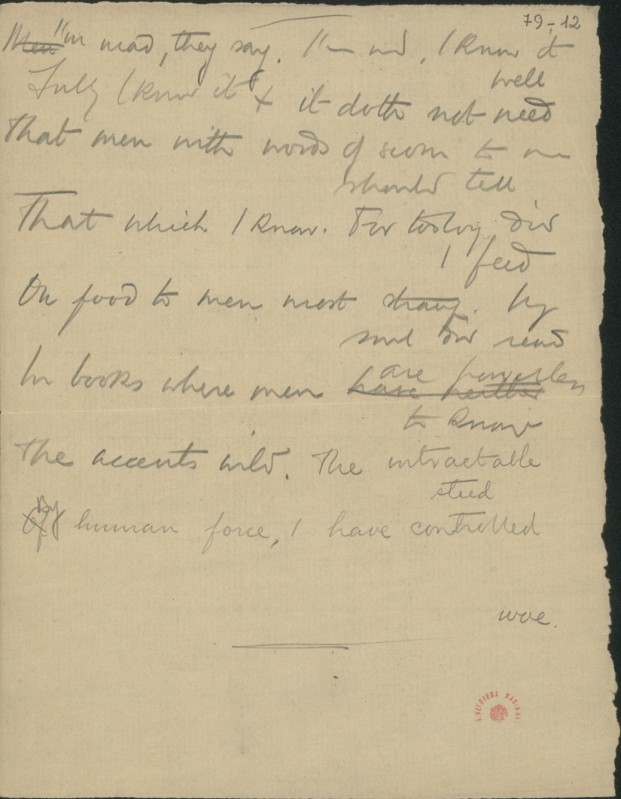 79-12
I'm mad, they say. I'm mad, I know it
well
Fully I know it & it doth not need
That men with words of scorn to me
should tell
That which I know. For today did
I feed
On food to men most strange. My
soul did read
In books where men have neither are powerless
to know
The accents wild. The intractable
steed
By human force, I have controlled
woe.